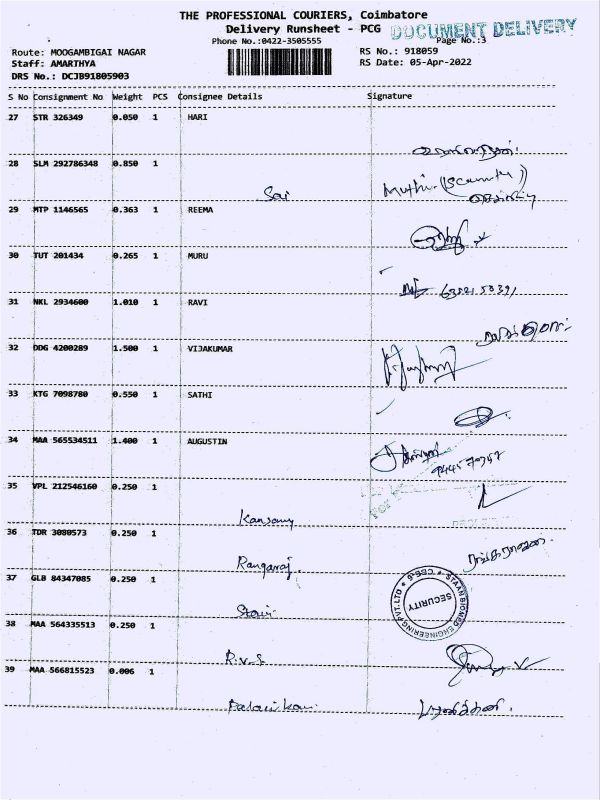 THE PROFESSIONAL COURIERS, Coimbatore
Delivery Runsheet - PCG
DOCUMENT DELIVERY
Phone No.:0422-3505555
Page No.:3
Route: MOOGAMBIGAI NAGAR
RS No.: 918059
Staff: AMARTHYA
RS Date: 05-Apr-2022
DRS No.: DCJB91805903
S No Consignment No Weight PCS Consignee Details Signature
27 STR 326349 0.050 1 HARI
28 SLM 292786348 0.850 1
Sai
Muthu (Security)
29 MTP 1146565 0.363 1 REEMA
30 TUT 201434 0.265 1 MURU
31 NKL 2934600 1.010 1 RAVI
32 DDG 4200289 1.500 1 VIJAKUMAR
33 KTG 7098780 0.550 1 SATHI
34 MAA 565534511 1.400 1 AUGUSTIN
35 VPL 212546160 0.250 1
Kansamy
36 TDR 3080573 0.250 1
Rangaraj.
37 GLB 84347085 0.250 1
STAAN BIOMED ENGINEERING PVT.LTD * CBE-6 *
SECURITY
38 MAA 564335513 0.250 1
R.V.S
39 MAA 566815523 0.006 1